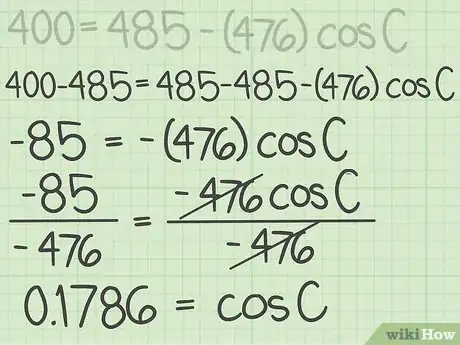 400 = 485 - (476) cos C
400-485 = 485-485-(476) cos C
-85 = -(476) cos C
-85 / -476 = -476 cos C / -476
0.1786 = cos C
wikiHow